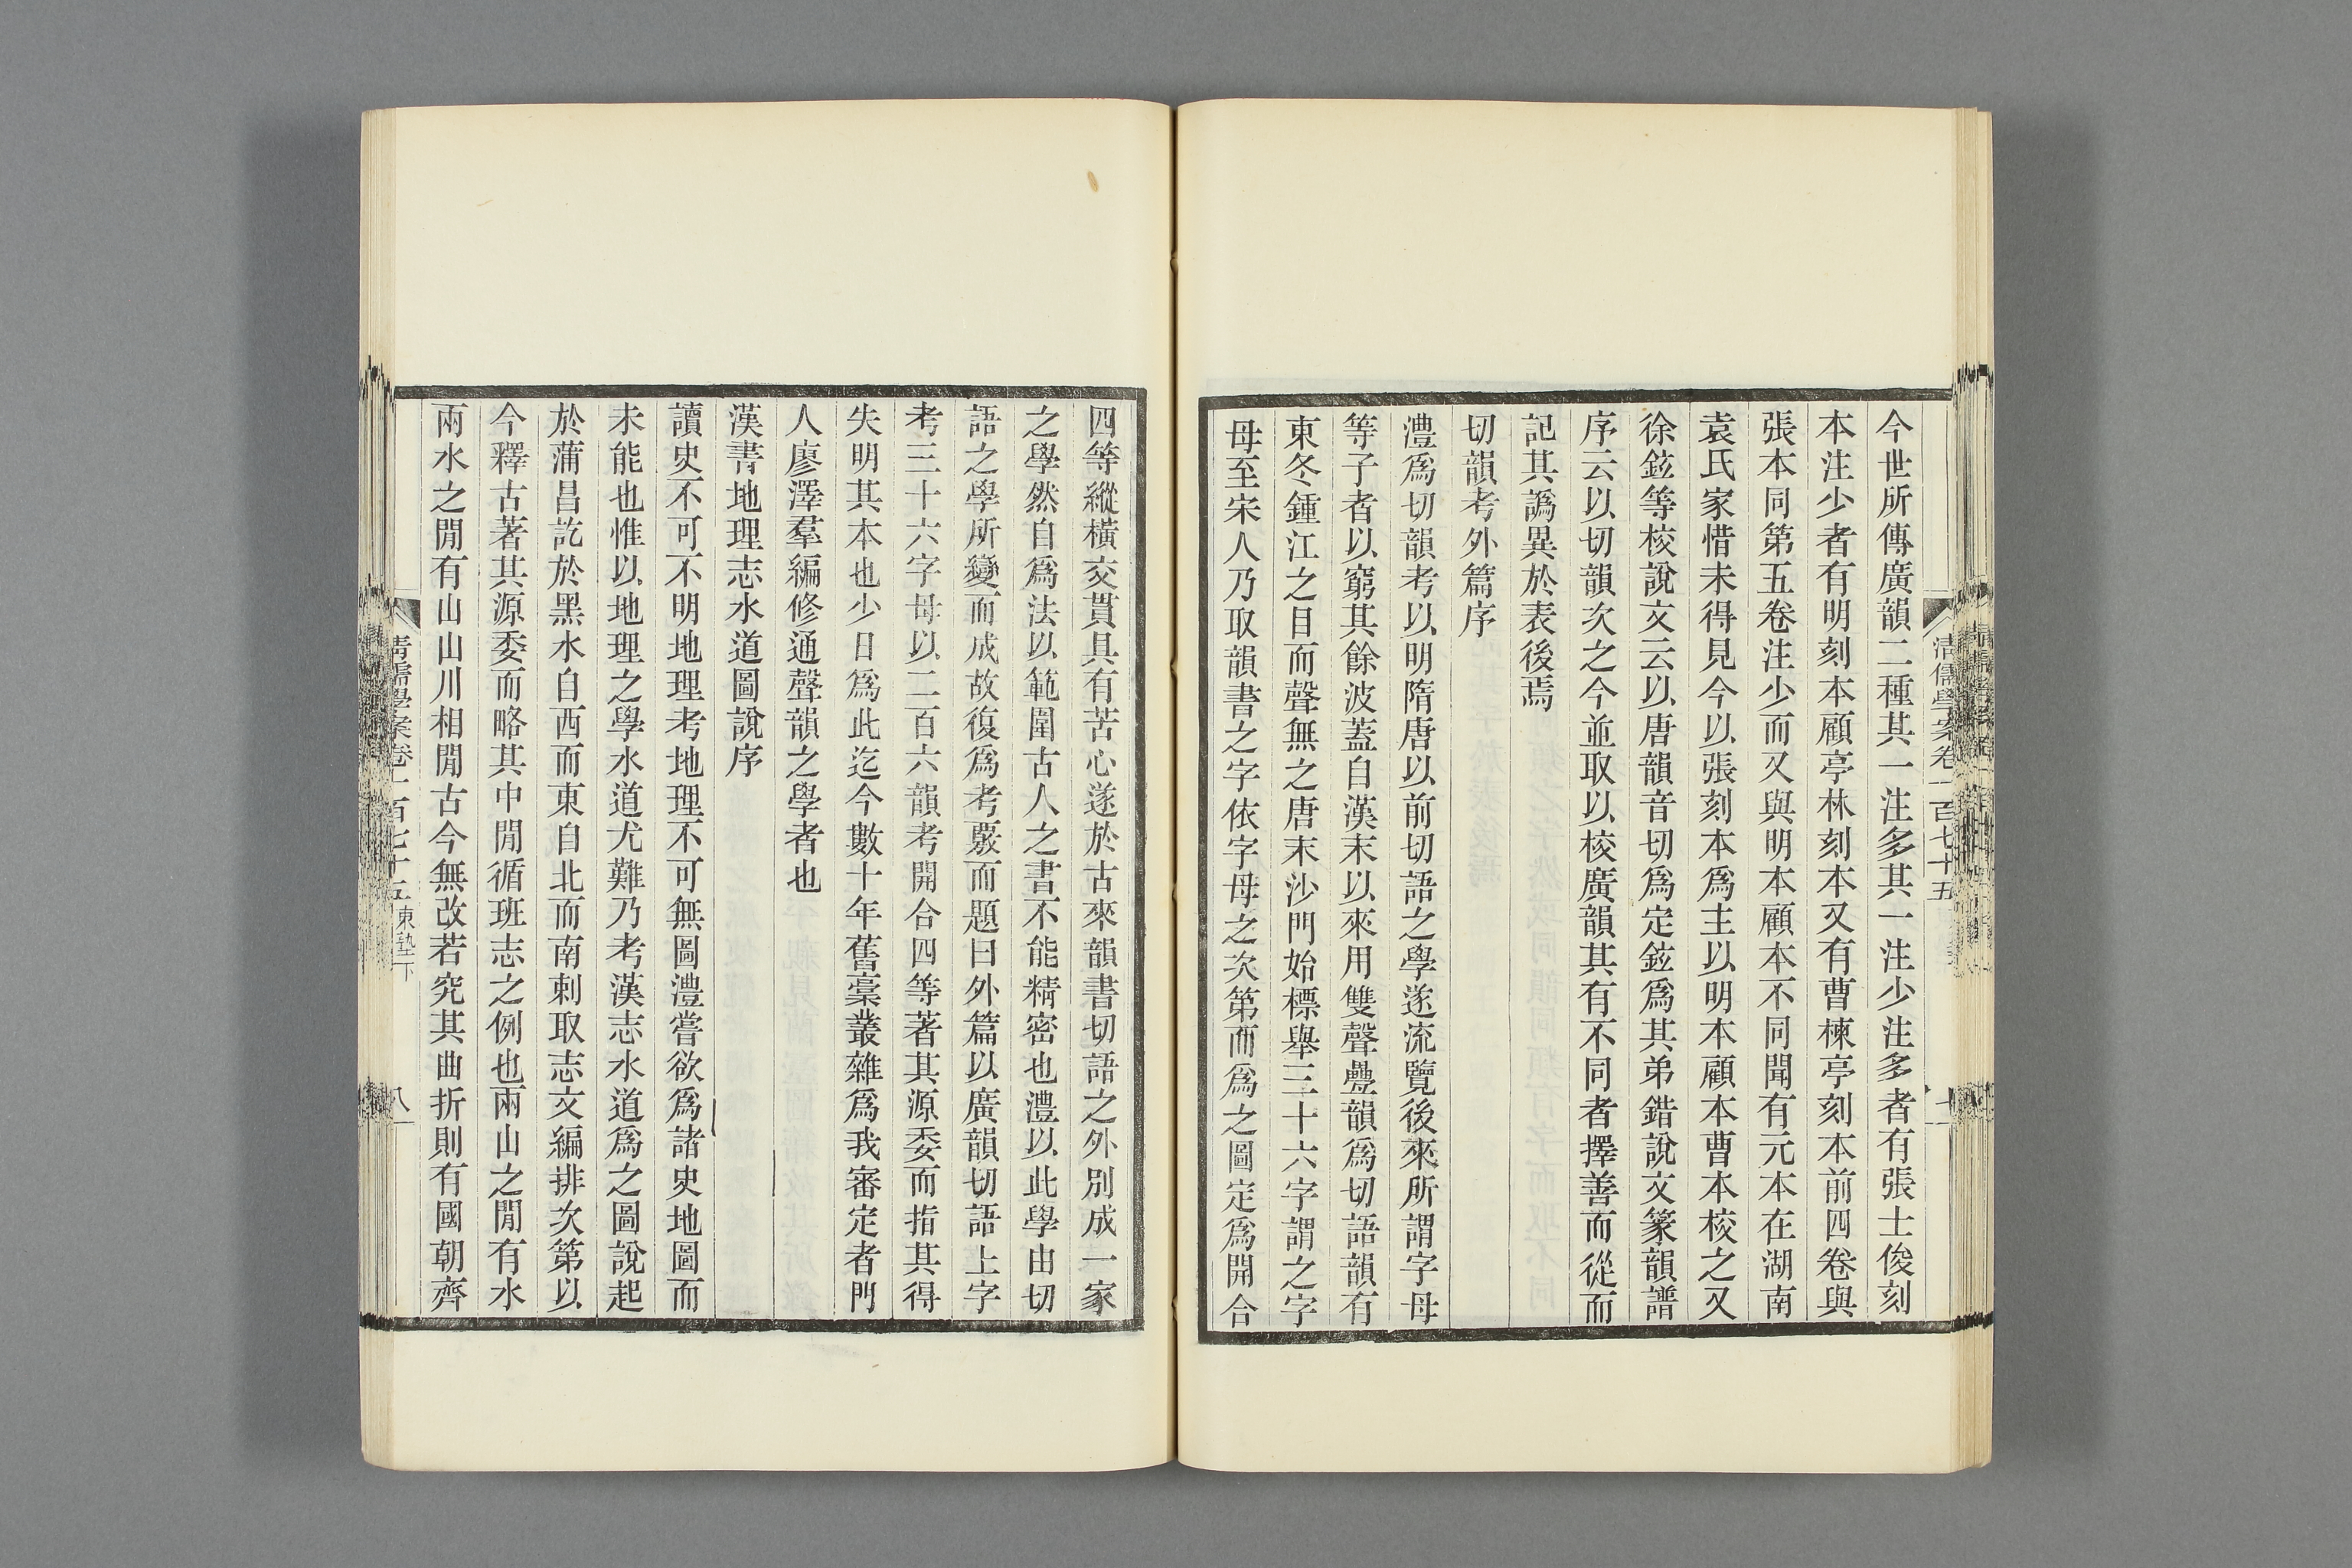 今世所傳廣韻二種其一注多其一注少注多者有張士俊刻
本注少者有明刻本顧亭林刻本又有曹楝亭刻本前四卷與
張本同第五卷注少而又與明本顧本不同聞有元本在湖南
袁氏家惜未得見今以張刻本爲主以明本顧本曹本校之又
徐鉉等校說文云以唐韻音切爲定鉉爲其弟錯說文篆韻譜
序云以切韻次之今並取以校廣韻其有不同者擇善而從而
記其譌異於表後焉
切韻考外篇序
澧爲切韻考以明隋唐以前切語之學遂流覽後來所謂字母
等子者以窮其餘波蓋自漢末以來用雙聲疊韻爲切語韻有
東冬鍾江之目而聲無之唐末沙門始標舉三十六字謂之字
母至宋人乃取韻書之字依字母之次第而爲之圖定爲開合
四等縱橫交貫具有苦心遂於古來韻書切語之外別成一家
之學然自爲法以範圍古人之書不能精密也澧以此學由切
語之學所變而成故復爲考覈而題曰外篇以廣韻切語上字
考三十六字母以二百六韻考開合四等著其源委而指其得
失明其本也少日爲此迄今數十年舊稾叢雜爲我審定者門
人廖澤羣編修通聲韻之學者也
漢書地理志水道圖說序
讀史不可不明地理考地理不可無圖澧嘗欲爲諸史地圖而
未能也惟以地理之學水道尤難乃考漢志水道爲之圖說起
於蒲昌訖於黑水自西而東自北而南刺取志文編排次第以
今釋古著其源委而略其中閒循班志之例也兩山之閒有水
兩水之閒有山山川相閒古今無改若究其曲折則有國朝齊
清儒學案卷一百七十五 東塾下
八
清儒學案卷一百七十五